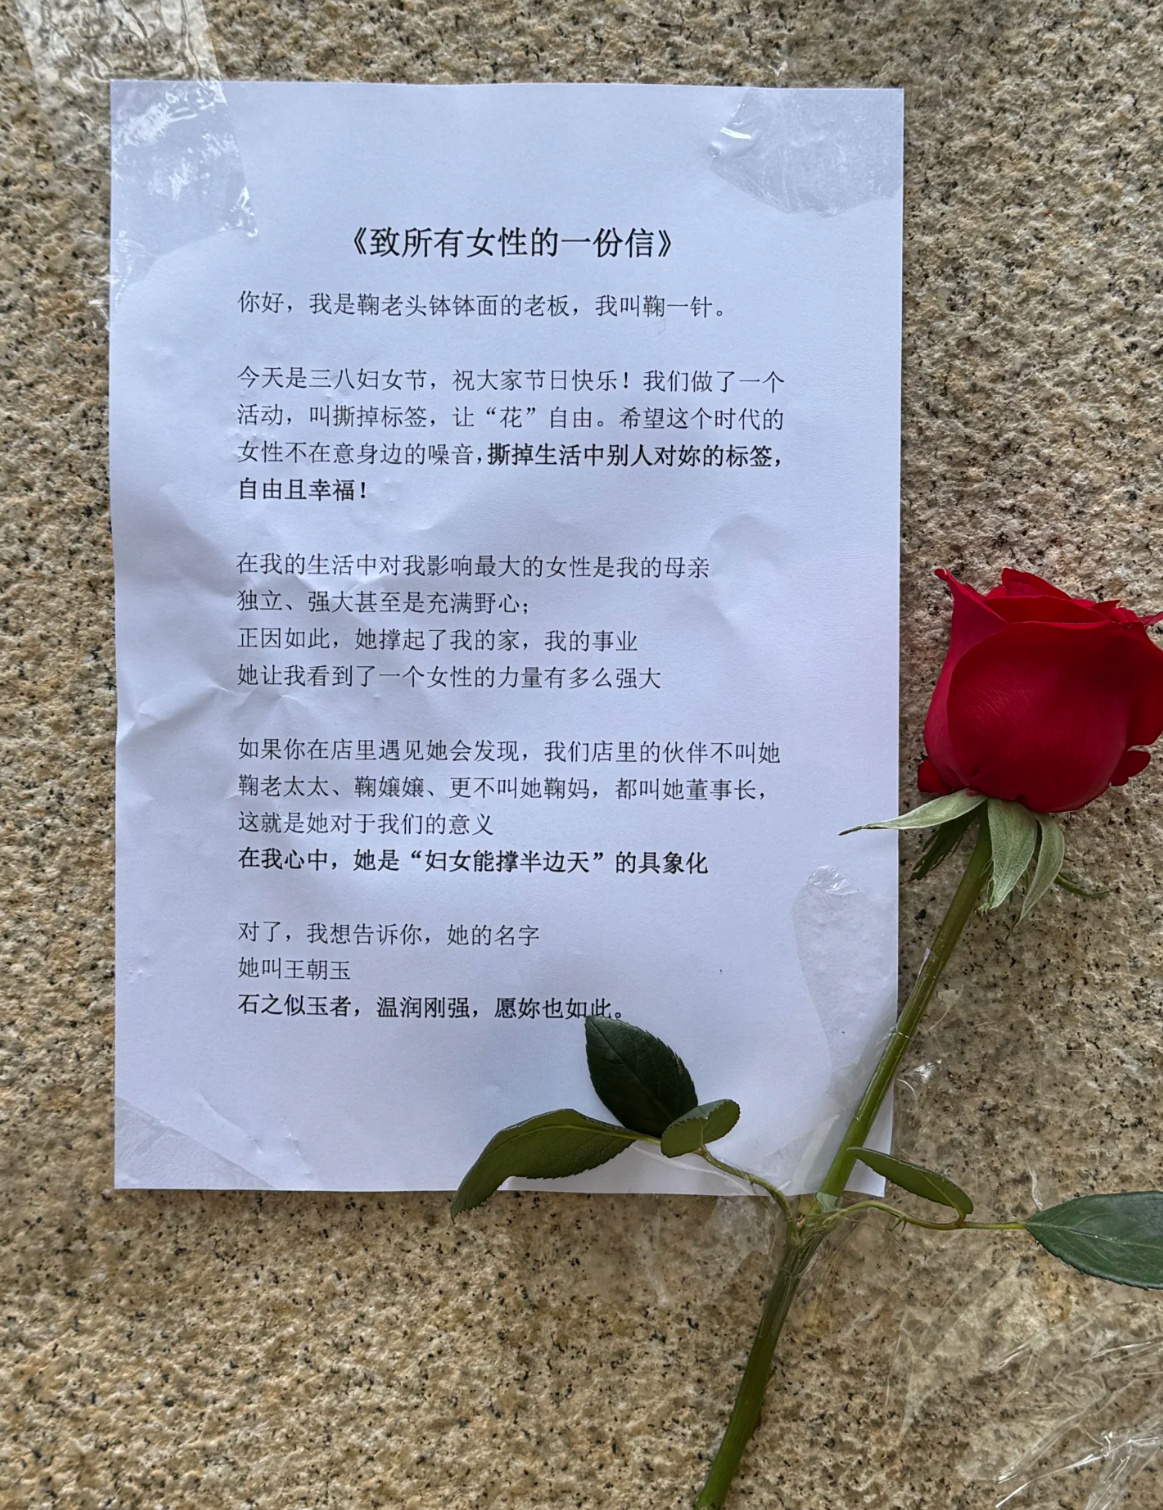 《致所有女性的一份信》
你好，我是鞠老头钵钵面的老板，我叫鞠一针。
今天是三八妇女节，祝大家节日快乐！我们做了一个
活动，叫撕掉标签，让“花”自由。希望这个时代的
女性不在意身边的噪音，撕掉生活中别人对妳的标签，
自由且幸福！
在我的生活中对我影响最大的女性是我的母亲
独立、强大甚至是充满野心；
正因如此，她撑起了我的家，我的事业
她让我看到了一个女性的力量有多么强大
如果你在店里遇见她会发现，我们店里的伙伴不叫她
鞠老太太、鞠嬢嬢、更不叫她鞠妈，都叫她董事长，
这就是她对于我们的意义
在我心中，她是“妇女能撑半边天”的具象化
对了，我想告诉你，她的名字
她叫王朝玉
石之似玉者，温润刚强，愿妳也如此。